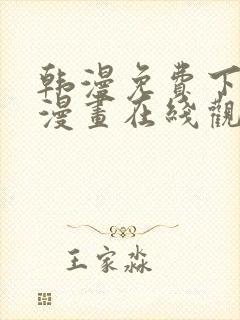 韩漫免费下
漫畫在綫觀
王家淼